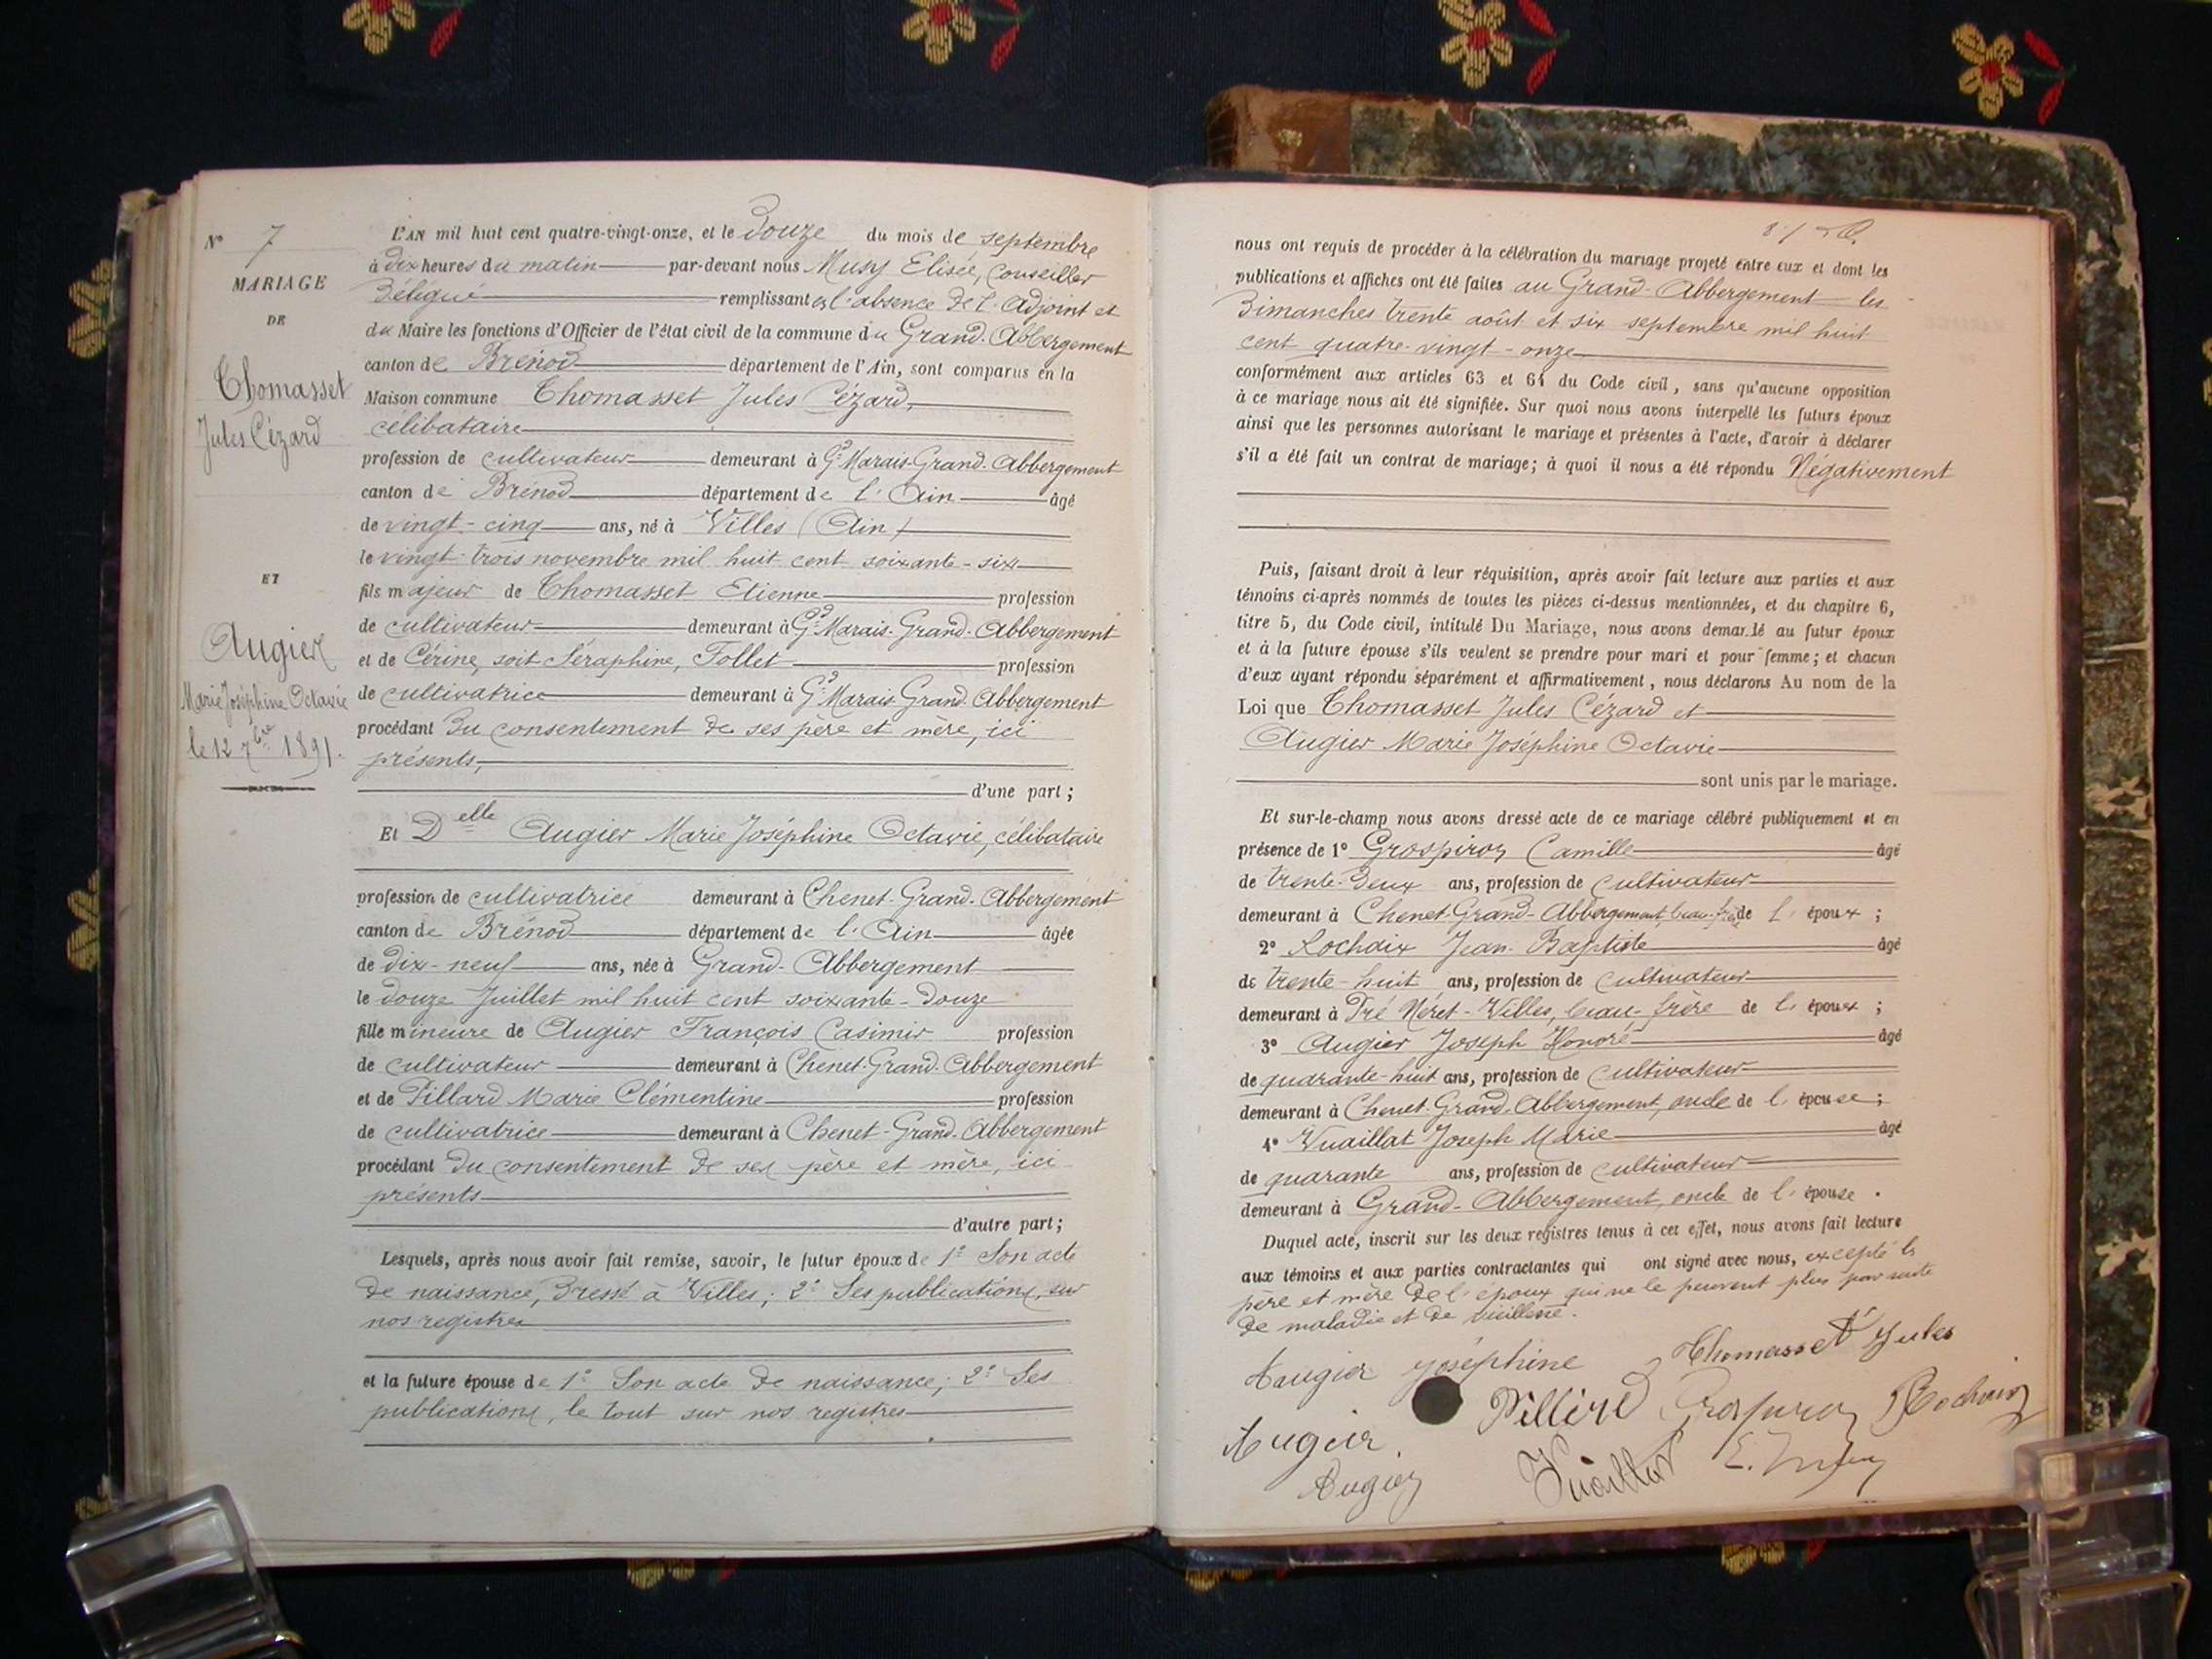 N° 7
MARIAGE
DE
Thomasset
Jules Cézard
ET
Augier
Marie Joséphine Octavie
le 12 7bre 1891.
L'AN mil huit cent quatre-vingt-onze, et le Douze du mois de septembre
à dix heures du matin par-devant nous Musy Elisée, Conseiller
Délégué remplissant en l'absence de l'Adjoint et
du Maire les fonctions d'Officier de l'état civil de la commune du Grand-Abbergement
canton de Brénod département de l'Ain, sont comparus en la
Maison commune Thomasset Jules Cézard,
célibataire
profession de cultivateur demeurant à Gd Marais-Grand-Abbergement
canton de Brénod département de l'Ain âgé
de vingt-cinq ans, né à Villes (Ain)
le vingt-trois novembre mil huit cent soixante-six
fils majeur de Thomasset Etienne profession
de cultivateur demeurant à Gd Marais-Grand-Abbergement
et de Cérine, soit Séraphine, Follet profession
de cultivatrice demeurant à Gd Marais Grand-Abbergement
procédant Du consentement de ses père et mère, ici
présents,
d'une part;
Et Delle Augier Marie Joséphine Octavie, célibataire
profession de cultivatrice demeurant à Chenet-Grand-Abbergement
canton de Brénod département de l'Ain âgée
de dix-neuf ans, née à Grand-Abbergement
le douze Juillet mil huit cent soixante-douze
fille mineure de Augier François Casimir profession
de cultivateur demeurant à Chenet-Grand-Abbergement
et de Pillard Marie Clémentine profession
de cultivatrice demeurant à Chenet-Grand-Abbergement
procédant Du consentement de ses père et mère, ici
présents
d'autre part;
Lesquels, après nous avoir fait remise, savoir, le futur époux de 1° Son acte
de naissance, Dressé à Villes; 2° Ses publications, sur
nos registres
et la future épouse de 1° Son acte de naissance; 2° Ses
publications, le tout sur nos registres
nous ont requis de procéder à la célébration du mariage projeté entre eux et dont les
publications et affiches ont été faites au Grand-Abbergement les
Dimanches trente août et six septembre mil huit
cent quatre-vingt-onze
conformément aux articles 63 et 64 du Code civil, sans qu'aucune opposition
à ce mariage nous ait été signifiée. Sur quoi nous avons interpellé les futurs époux
ainsi que les personnes autorisant le mariage et présentes à l'acte, d'avoir à déclarer
s'il a été fait un contrat de mariage; à quoi il nous a été répondu Négativement
Puis, faisant droit à leur réquisition, après avoir fait lecture aux parties et aux
témoins ci-après nommés de toutes les pièces ci-dessus mentionnées, et du chapitre 6,
titre 5, du Code civil, intitulé Du Mariage, nous avons demandé au futur époux
et à la future épouse s'ils veulent se prendre pour mari et pour femme; et chacun
d'eux ayant répondu séparément et affirmativement, nous déclarons Au nom de la
Loi que Thomasset Jules Cézard et
Augier Marie Joséphine Octavie
sont unis par le mariage.
Et sur-le-champ nous avons dressé acte de ce mariage célébré publiquement et en
présence de 1° Grospiron Camille âgé
de trente-deux ans, profession de cultivateur
demeurant à Chenet-Grand-Abbergement, beau-frère de l'époux;
2° Rochaix Jean-Baptiste âgé
de trente-huit ans, profession de cultivateur
demeurant à Pré Néret-Villes, beau-frère de l'époux;
3° Augier Joseph Honoré âgé
de quarante-huit ans, profession de cultivateur
demeurant à Chenet-Grand-Abbergement, oncle de l'épouse;
4° Vuaillat Joseph Marie âgé
de quarante ans, profession de cultivateur
demeurant à Grand-Abbergement, oncle de l'épouse.
Duquel acte, inscrit sur les deux registres tenus à cet effet, nous avons fait lecture
aux témoins et aux parties contractantes qui ont signé avec nous, excepté les
père et mère de l'époux qui ne le peuvent plus par suite
de maladie et de vieillesse.
Augier Joséphine Thomasset Jules
Pillard Grospiron Rochaix
Augier.
Augier Vuaillat E. Musy